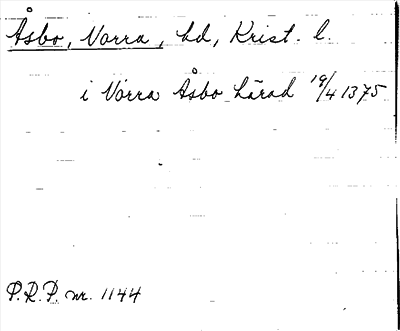 Åsbo, Norra, hd, Krist. l.
i Norra Åsbo härad 19/4 1375
P.R.P. nr. 1144